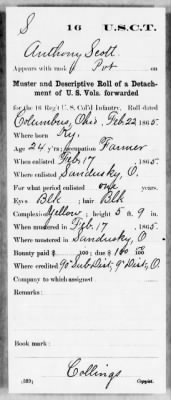 S 16 U.S.C.T.
Anthony Scott
Appears with rank Pvt on
Muster and Descriptive Roll of a Detach-
ment of U. S. Vols. forwarded
for the 16 Reg't U. S. Col'd Infantry. Roll dated
Columbus, Ohio, Feb 22 1865.
Where born Ky.
Age 24 y'rs; occupation Farmer
When enlisted Feb. 17, 1865.
Where enlisted Sandusky, O.
For what period enlisted one years.
Eyes Blk; hair Blk
Complexion Yellow; height 5 ft. 9 in.
When mustered in Feb. 17, 1865.
Where mustered in Sandusky, O.
Bounty paid $ 100; due $ 100
Where credited 90" SubDist; 9" Dist; O.
Company to which assigned
Remarks:
Book mark:
Collings
(339) Copyist.